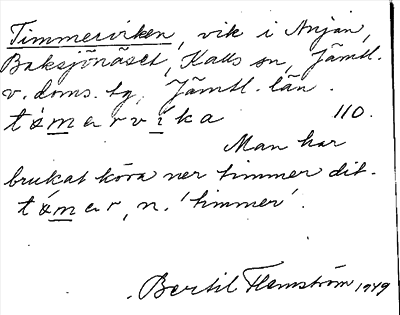 Timmerviken, vik i Anjan,
Baksjönäset, Kalls sn, Jämtl.
v. doms. tg, Jämtl. län.
támarvíka 110.
Man har
brukat köra ner timmer dit.
támar, n. 'timmer'.
Bertil Flemström 1949